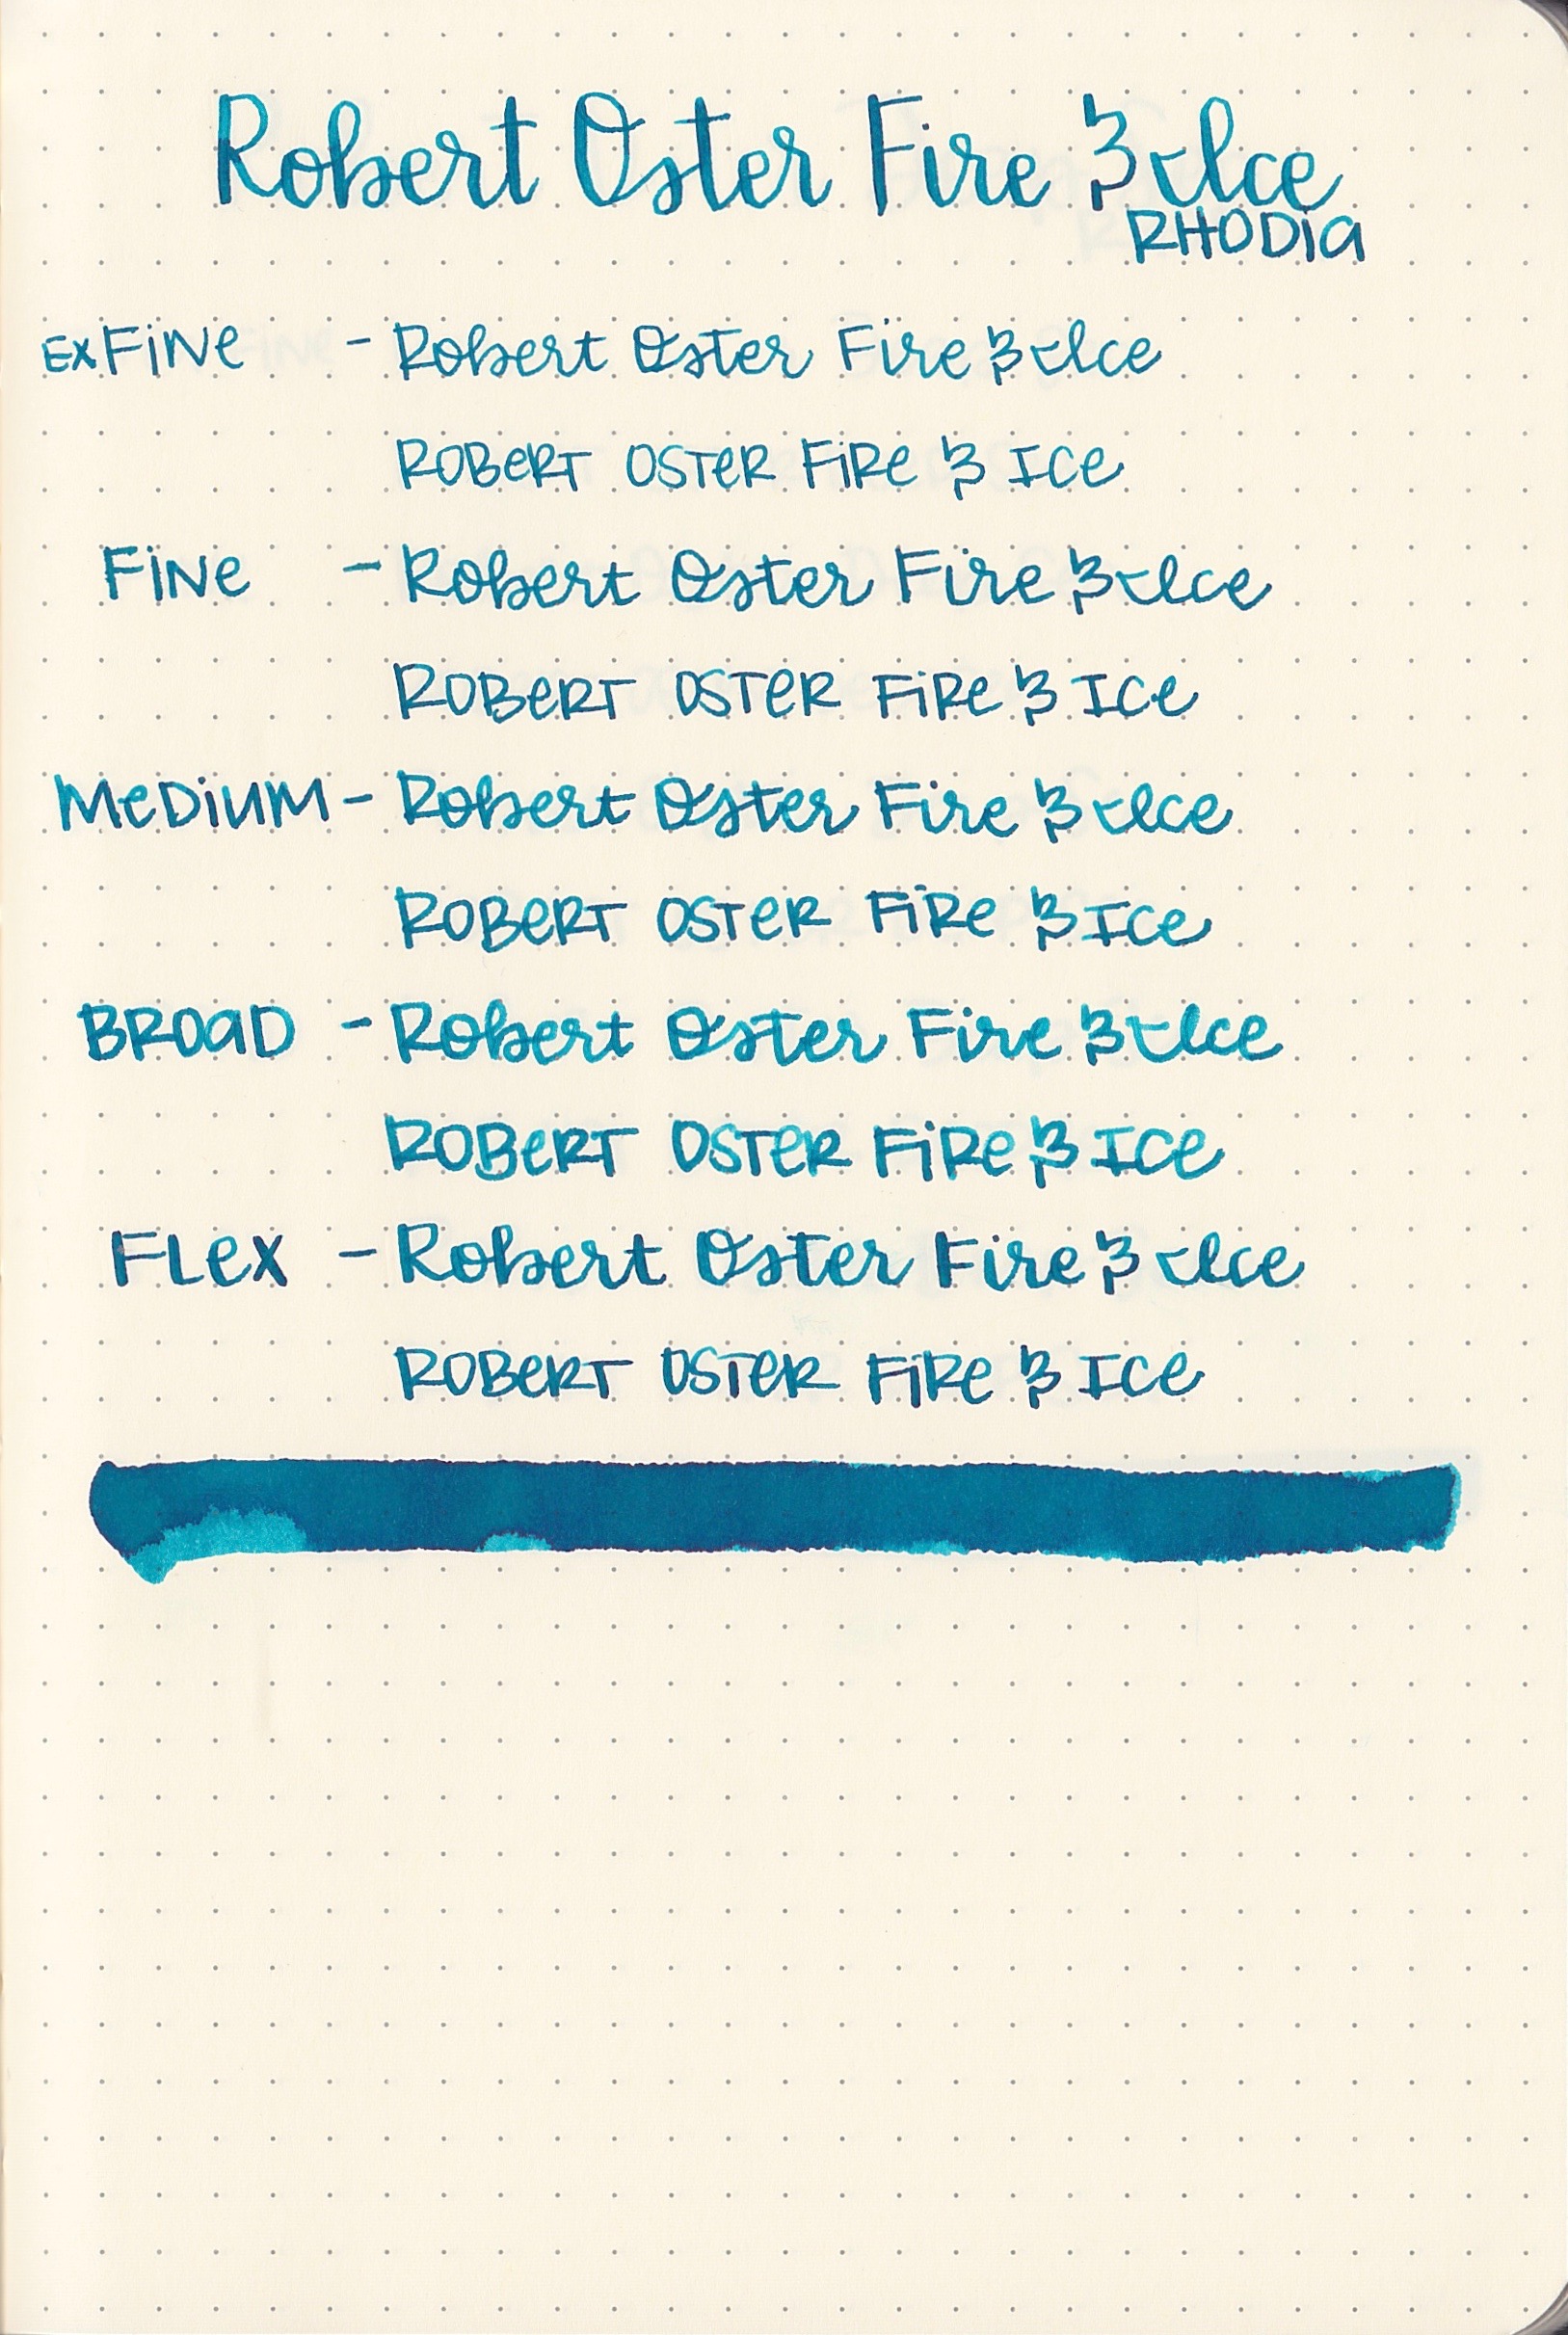 Robert Oster Fire & Ice
RHODIA
EXFINE - Robert Oster Fire & Ice
ROBERT OSTER FIRE & ICE
FINE - Robert Oster Fire & Ice
ROBERT OSTER FIRE & ICE
MEDIUM - Robert Oster Fire & Ice
ROBERT OSTER FIRE & ICE
BROAD - Robert Oster Fire & Ice
ROBERT OSTER FIRE & ICE
FLEX - Robert Oster Fire & Ice
ROBERT OSTER FIRE & ICE